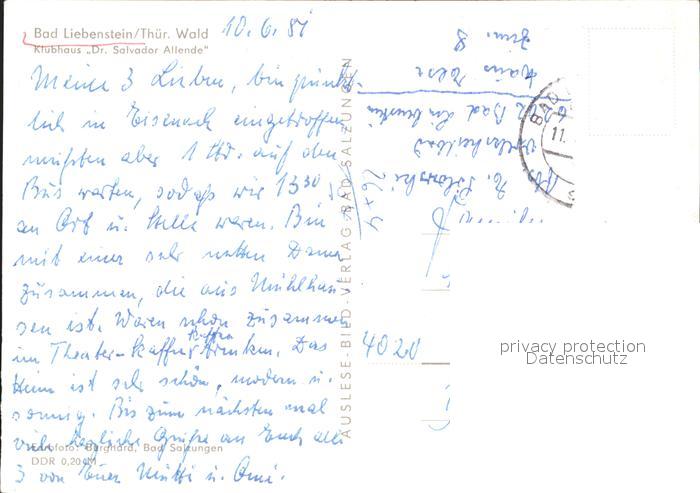 Bad Liebenstein/Thür. Wald
10.6.81
Klubhaus „Dr. Salvador Allende“
Meine 3 Lieben, bin pünkt-
lich in Eisenach eingetroffen
mußten aber 1 Std. auf den
Bus warten, sodaß wir 13³⁰
an Ort u. Stelle waren. Bin
mit einer sehr netten Dame
zusammen, die aus Mühlhau-
sen ist. Waren schon zusammen
im Theater-Kaffee Kaffee trinken. Das
Heim ist sehr schön, modern u.
sonnig. Bis zum nächsten mal
viele herzliche Grüße an Euch alle
3 von Eurer Mutti u. Omi.
Farbfoto: Burghard, Bad Salzungen
DDR 0,20 M
AUSLESE-BILD-VERLAG-BAD SALZUNGEN
Bad Liebenstein
Zim. 8
BAD
11.
4020
privacy protection
Datenschutz